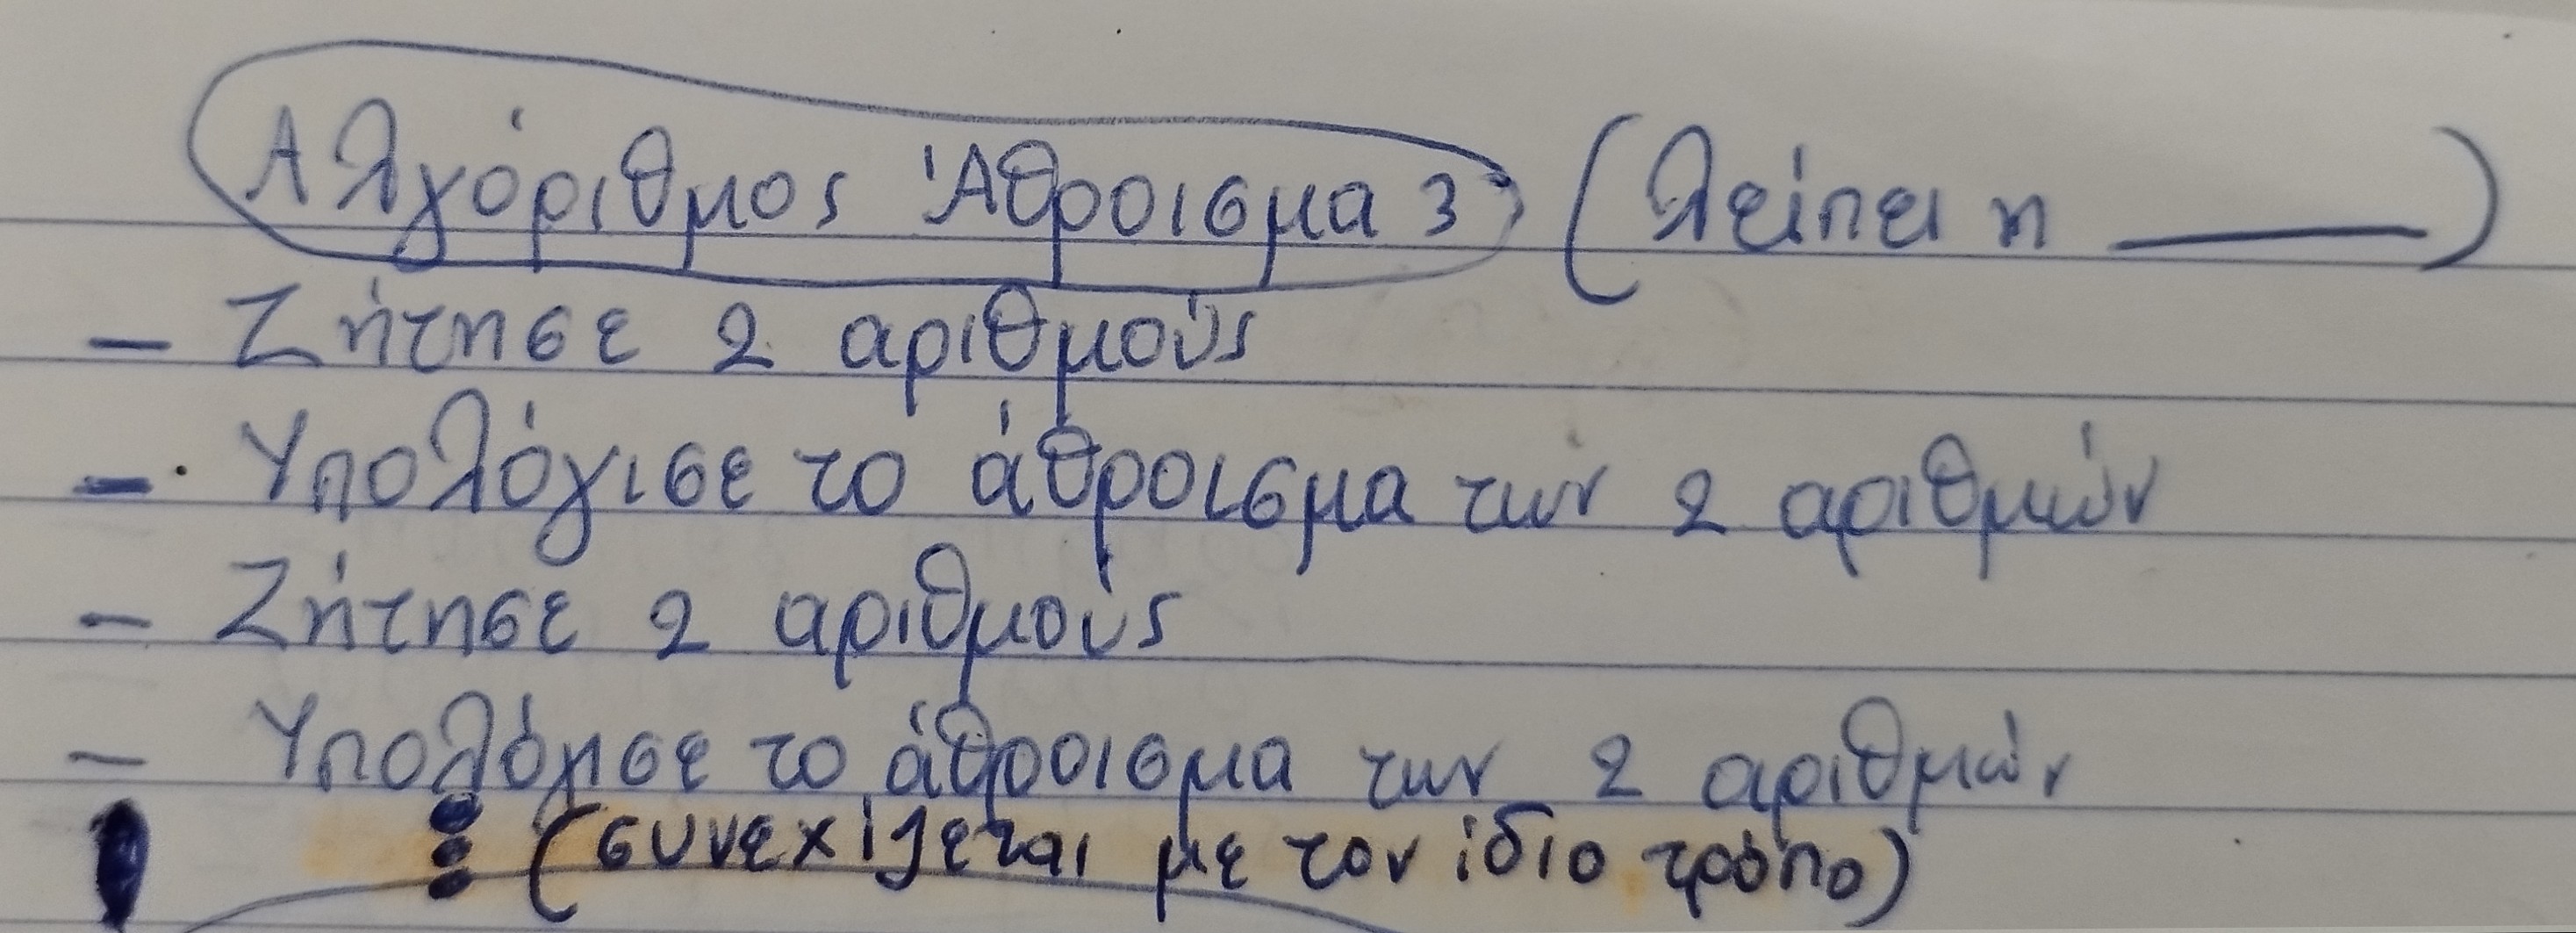 Αλγόριθμος Άθροισμα 3 (λείπει η ______)
– Ζήτησε 2 αριθμούς
– Υπολόγισε το άθροισμα των 2 αριθμών
– Ζήτησε 2 αριθμούς
– Υπολόγισε το άθροισμα των 2 αριθμών
⋮ (συνεχίζεται με τον ίδιο τρόπο)